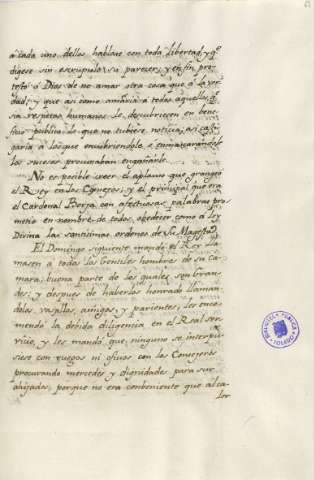 a cada uno dellos hablase con toda libertad, y q̃
dijese sin escrupulo su parecer; y en fin pro-
testó á Dios de no amar otra cosa que á la ver-
dad; y que asi como amaria á todos aquellos q̃
sin respetos humanos le descubriesen en bene-
ficio publico lo que no tubiese noticia, asi cas-
garia á los que encubriendole, ò enmascarandole
los sucesos procuraban engañarle.
No es posible creer el aplauso que grangeó
el Rey en los Consejos; y el principal que era
el Cardenal Borja con afectuosas palabras pro-
metió en nombre de todos, obedecer como á ley
Divina las santisimas ordenes de Su Magestad.
El Domingo siguiente mandó el Rey lla-
masen á todos los Gentiles hombres de su ca-
mara; buena parte de los quales son Gran-
des; y despues de haberlos honrado llaman-
dolos, vasallos, amigos, y parientes, les enco-
mendó la debida diligencia en el Real ser-
vicio, y les mandó que ninguno se interpu-
siese con ruegos ni oficios con los Consejeros
procurando mercedes y dignidades para sus
ahijados, porque no era conbeniente que al ca-
lor
BIBLIOTECA PUBLICA
TOLEDO